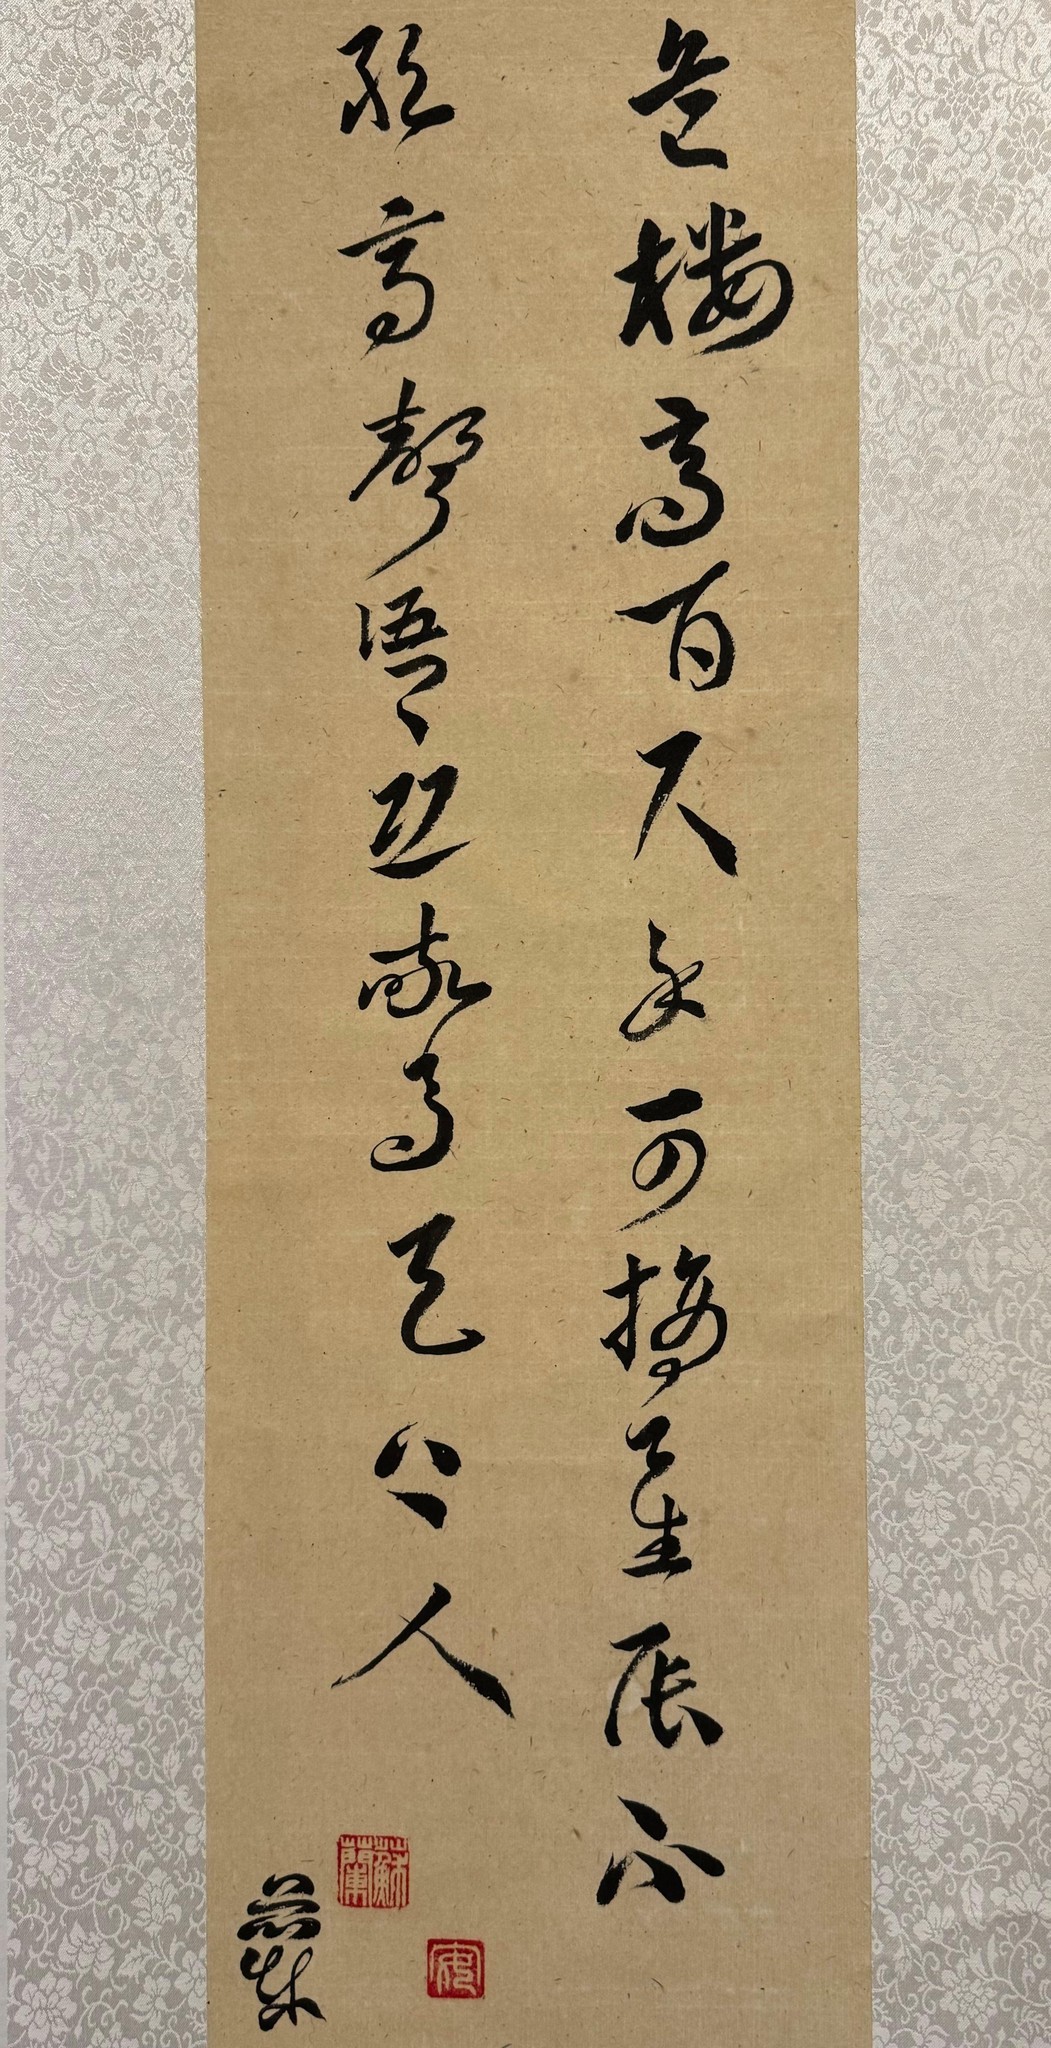 危樓高百尺手可摘星辰不
敢高聲語恐驚天上人
蘇蘭